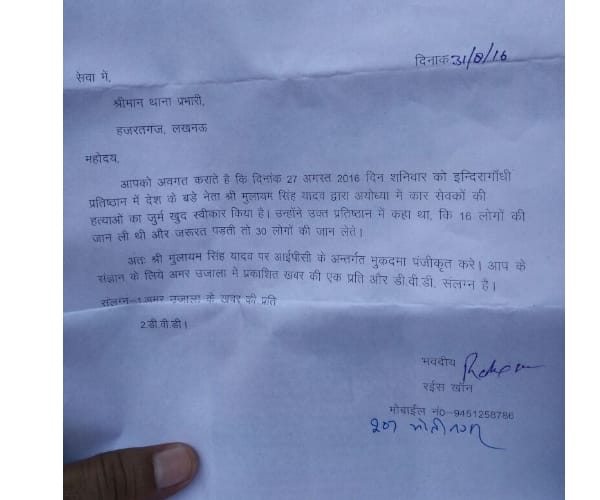 दिनाक 31/8/16
सेवा में,
श्रीमान थाना प्रभारी,
हजरतगज, लखनऊ
महोदय,
आपको अवगत कराते है कि दिनांक 27 अगस्त 2016 दिन शनिवार को इन्दिरागाँधी
प्रतिष्ठान में देश के बड़े नेता श्री मुलायम सिंह यादव द्वारा अयोध्या में कार सेवकों की
हत्याओं का जुर्म खुद स्वीकार किया है। उन्होंने उक्त प्रतिष्ठान में कहा था, कि 16 लोगों की
जान ली थी और जरूरत पडती तो 30 लोगों की जान लेते।
अतः श्री मुलायम सिंह यादव पर आईपीसी के अन्तर्गत मुकदमा पंजीकृत करे। आप के
संज्ञान के लिये अमर उजाला में प्रकाशित खबर की एक प्रति और डी.वी.डी. संलग्न है।
संलग्न-1.अमर उजाला के खबर की प्रति
2.डी.वी.डी।
भवदीय
रईस खॉन
मोबाईल नं0-9451258786